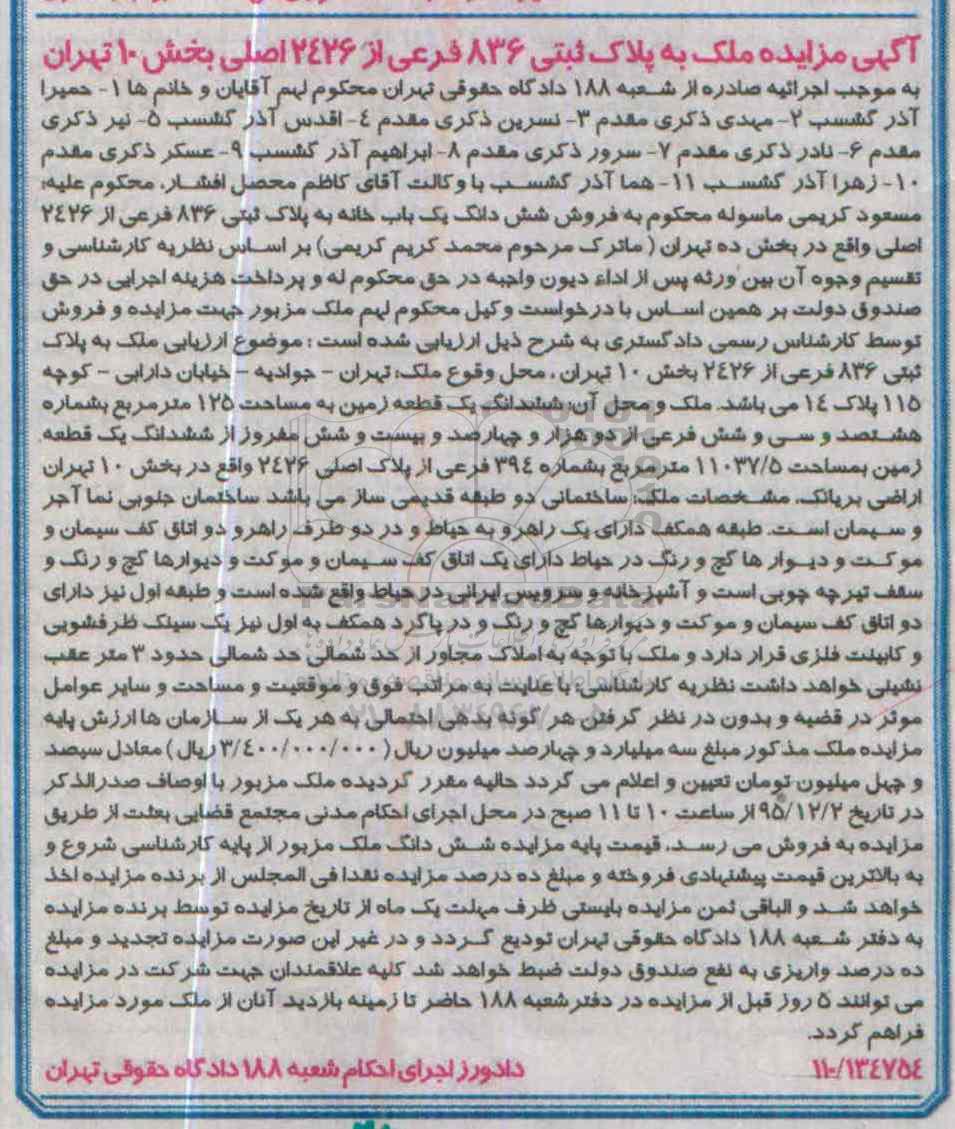 آگهی مزایده ملک به پلاک ثبتی ۸۳۶ فرعی از ۲۴۲۶ اصلی بخش ۱۰ تهران
به موجب اجرائیه صادره از شعبه ۱۸۸ دادگاه حقوقی تهران محکوم لهم آقایان و خانم ها ۱- حمیرا
آذر گشسب ۲- مهدی ذکری مقدم ۳- نسرین ذکری مقدم ۴- اقدس آذر گشسب ۵- نیر ذکری
مقدم ۶- نادر ذکری مقدم ۷- سرور ذکری مقدم ۸- ابراهیم آذر گشسب ۹- عسکر ذکری مقدم
۱۰- زهرا آذر گشسب ۱۱- هما آذر گشسب با وکالت آقای کاظم محصل افشار، محکوم علیه:
مسعود کریمی ماسوله محکوم به فروش شش دانگ یک باب خانه به پلاک ثبتی ۸۳۶ فرعی از ۲۴۲۶
اصلی واقع در بخش ده تهران ( ماترک مرحوم محمد کریم کریمی) بر اساس نظریه کارشناسی و
تقسیم وجوه آن بین ورثه پس از اداء دیون واجبه در حق محکوم له و پرداخت هزینه اجرایی در حق
صندوق دولت بر همین اساس با درخواست وکیل محکوم لهم ملک مزبور جهت مزایده و فروش
توسط کارشناس رسمی دادگستری به شرح ذیل ارزیابی شده است : موضوع ارزیابی ملک به پلاک
ثبتی ۸۳۶ فرعی از ۲۴۲۶ بخش ۱۰ تهران ، محل وقوع ملک: تهران - جوادیه - خیابان دارابی - کوچه
۱۱۵ پلاک ۱۴ می باشد. ملک و محل آن: ششدانگ یک قطعه زمین به مساحت ۱۲۵ مترمربع بشماره
هشتصد و سی و شش فرعی از دو هزار و چهارصد و بیست و شش مفروز از ششدانگ یک قطعه
زمین بمساحت ۱۱۰۳۷/۵ مترمربع بشماره ۳۹۴ فرعی از پلاک اصلی ۲۴۲۶ واقع در بخش ۱۰ تهران
اراضی بریانک، مشخصات ملک: ساختمانی دو طبقه قدیمی ساز می باشد ساختمان جنوبی نما آجر
و سیمان است. طبقه همکف دارای یک راهرو به حیاط و در دو طرف راهرو دو اتاق کف سیمان و
موکت و دیوار ها گچ و رنگ در حیاط دارای یک اتاق کف سیمان و موکت و دیوارها گچ و رنگ و
سقف تیرچه چوبی است و آشپزخانه و سرویس ایرانی در حیاط واقع شده است و طبقه اول نیز دارای
دو اتاق کف سیمان و موکت و دیوارها گچ و رنگ و در پاگرد همکف به اول نیز یک سینک ظرفشویی
و کابینت فلزی قرار دارد و ملک با توجه به املاک مجاور از حد شمالی حد شمالی حدود ۳ متر عقب
نشینی خواهد داشت نظریه کارشناسی: با عنایت به مراتب فوق و موقعیت و مساحت و سایر عوامل
موثر در قضیه و بدون در نظر گرفتن هر گونه بدهی احتمالی به هر یک از سازمان ها ارزش پایه
مزایده ملک مذکور مبلغ سه میلیارد و چهارصد میلیون ریال ( ۳/۴۰۰/۰۰۰/۰۰۰ ریال ) معادل سیصد
و چهل میلیون تومان تعیین و اعلام می گردد حالیه مقرر گردیده ملک مزبور با اوصاف صدرالذکر
در تاریخ ۹۵/۱۲/۲ از ساعت ۱۰ تا ۱۱ صبح در محل اجرای احکام مدنی مجتمع قضایی بعثت از طریق
مزایده به فروش می رسد. قیمت پایه مزایده شش دانگ ملک مزبور از پایه کارشناسی شروع و
به بالاترین قیمت پیشنهادی فروخته و مبلغ ده درصد مزایده نقدا فی المجلس از برنده مزایده اخذ
خواهد شد و الباقی ثمن مزایده بایستی ظرف مهلت یک ماه از تاریخ مزایده توسط برنده مزایده
به دفتر شعبه ۱۸۸ دادگاه حقوقی تهران تودیع گردد و در غیر این صورت مزایده تجدید و مبلغ
ده درصد واریزی به نفع صندوق دولت ضبط خواهد شد کلیه علاقمندان جهت شرکت در مزایده
می توانند ۵ روز قبل از مزایده در دفتر شعبه ۱۸۸ حاضر تا زمینه بازدید آنان از ملک مورد مزایده
فراهم گردد.
۱۱۰/۱۳۴۷۵۴ دادورز اجرای احکام شعبه ۱۸۸ دادگاه حقوقی تهران